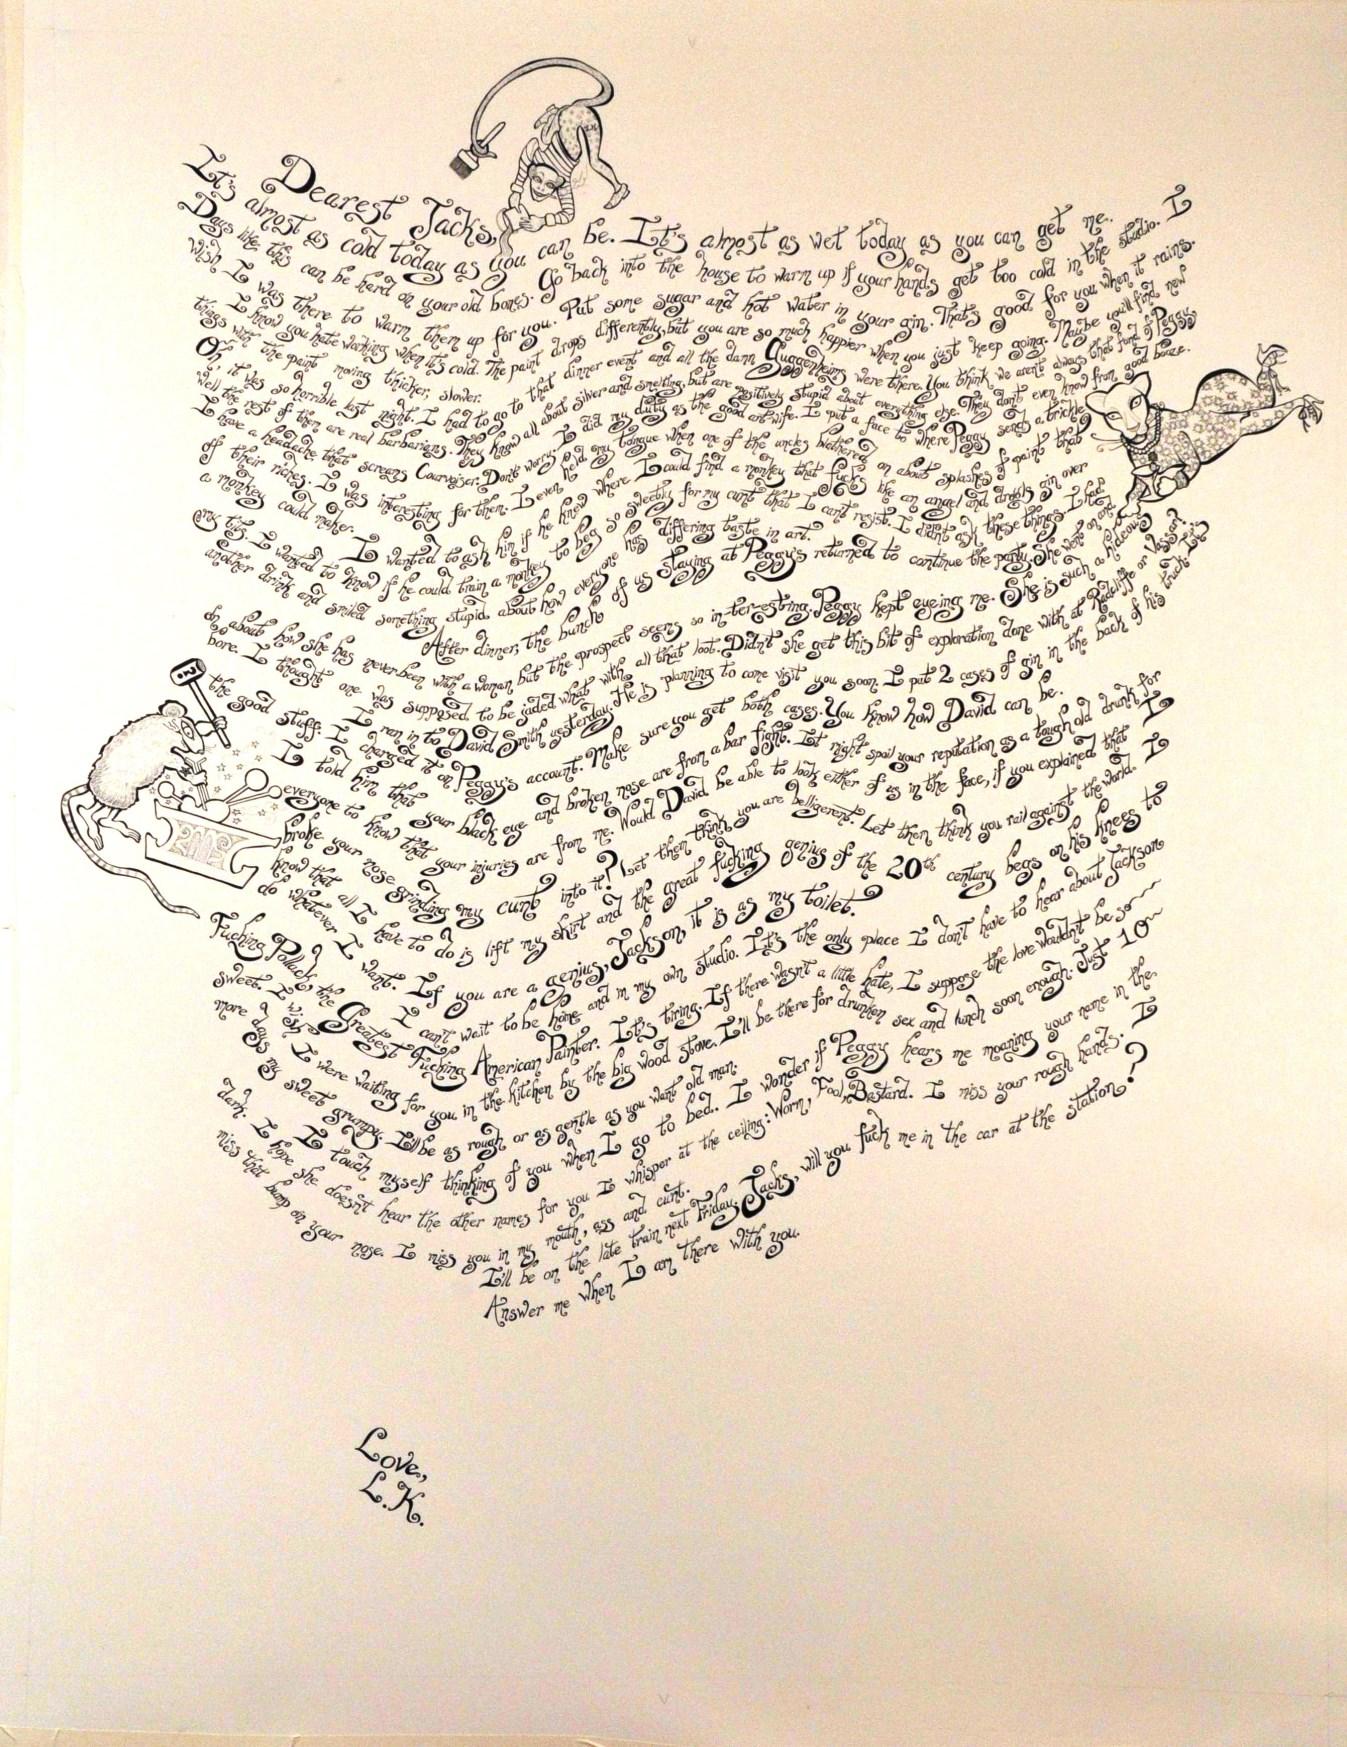 Dearest Jacks,
It's almost as cold today as you can be. It's almost as wet today as you can get me.
Days like this can be hard on your old bones. Go back into the house to warm up if your hands get too cold in the studio. I
wish I was there to warm them up for you. Put some sugar and hot water in your gin. That's good for you when it rains.
I know you hate working when it's cold. The paint drops differently, but you are so much happier when you just keep going. Maybe you'll find new
things with the paint moving thicker, slower.
Oh, it was so horrible last night. I had to go to that dinner event and all the damn Guggenheims were there. You think we aren't always that fond of Peggy
well the rest of them are real barbarians. They know all about silver and smelting, but are positively stupid about everything else. They don't even know from good booze.
I have a headache that screams Courvoiser. Don't worry-I did my duty as the good art wife. I put a face to where Peggy sends a trickle
of their riches. I was interesting for them. I even held my tongue when one of the uncles blathered on about splashes of paint that
a monkey could make.
I wanted to ask him if he knew where I could find a monkey that fucks like an angel and drools gin over
my tits. I wanted to know if he could train a monkey to beg so sweetly for my cunt that I can't resist. I didn't ask these things. I had
another drink and smiled something stupid about how everyone has differing taste in art.
After dinner, the bunch of us staying at Peggy's returned to continue the party. She went on and
on about how she has never been with a woman but the prospect seems so in-ter-estring. Peggy kept eyeing me. She is such a hideous
bore. I thought one was supposed to be jaded what with all that loot. Didn't she get this bit of exploration done with at Radcliffe or Vassar?
I ran in to David Smith yesterday. He is planning to come visit you soon. I put 2 cases of gin in the back of his truck. It's
the good stuff. I charged it on Peggy's account. Make sure you get both cases. You know how David can be.
I told him that your black eye and broken nose are from a bar fight. It might spoil your reputation as a tough old drunk for
everyone to know that your injuries are from me. Would David be able to look either of us in the face, if you explained that I
broke your nose grinding my cunt into it? Let them think you are belligerent. Let them think you rail against the world. I
know that all I have to do is lift my skirt and the great fucking genius of the 20th century begs on his knees to
do whatever I want. If you are a genius, Jackson, it is as my toilet.
I can't wait to be home and in my own studio. It's the only place I don't have to hear about Jackson
Fucking Pollack, the Greatest Fucking American Painter. It's tiring. If there wasn't a little hate, I suppose the love wouldn't be so
sweet. I wish I were waiting for you in the kitchen by the big wood stove. I'll be there for drunken sex and lunch soon enough. Just 10
more days my sweet grumpy. I'll be as rough or as gentle as you want old man.
I touch myself thinking of you when I go to bed. I wonder if Peggy hears me moaning your name in the
dark. I hope she doesn't hear the other names for you I whisper at the ceiling: Worm, Fool, Bastard. I miss your rough hands. I
miss that bump on your nose. I miss you in my mouth, ass and cunt.
I'll be on the late train next Friday. Jacks, will you fuck me in the car at the station?
Answer me when I am there with you.
Love,
L.K.